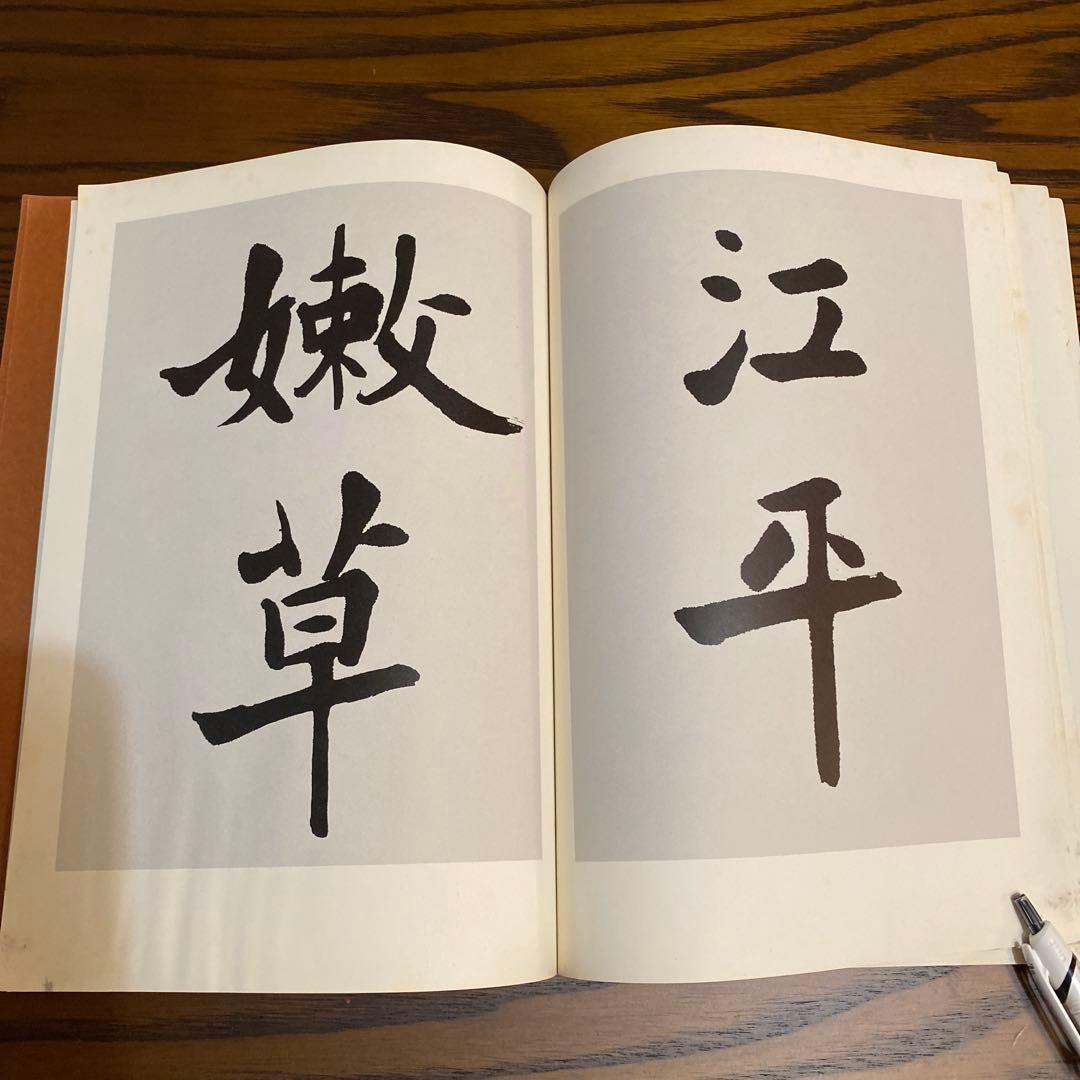 江平
嫩草